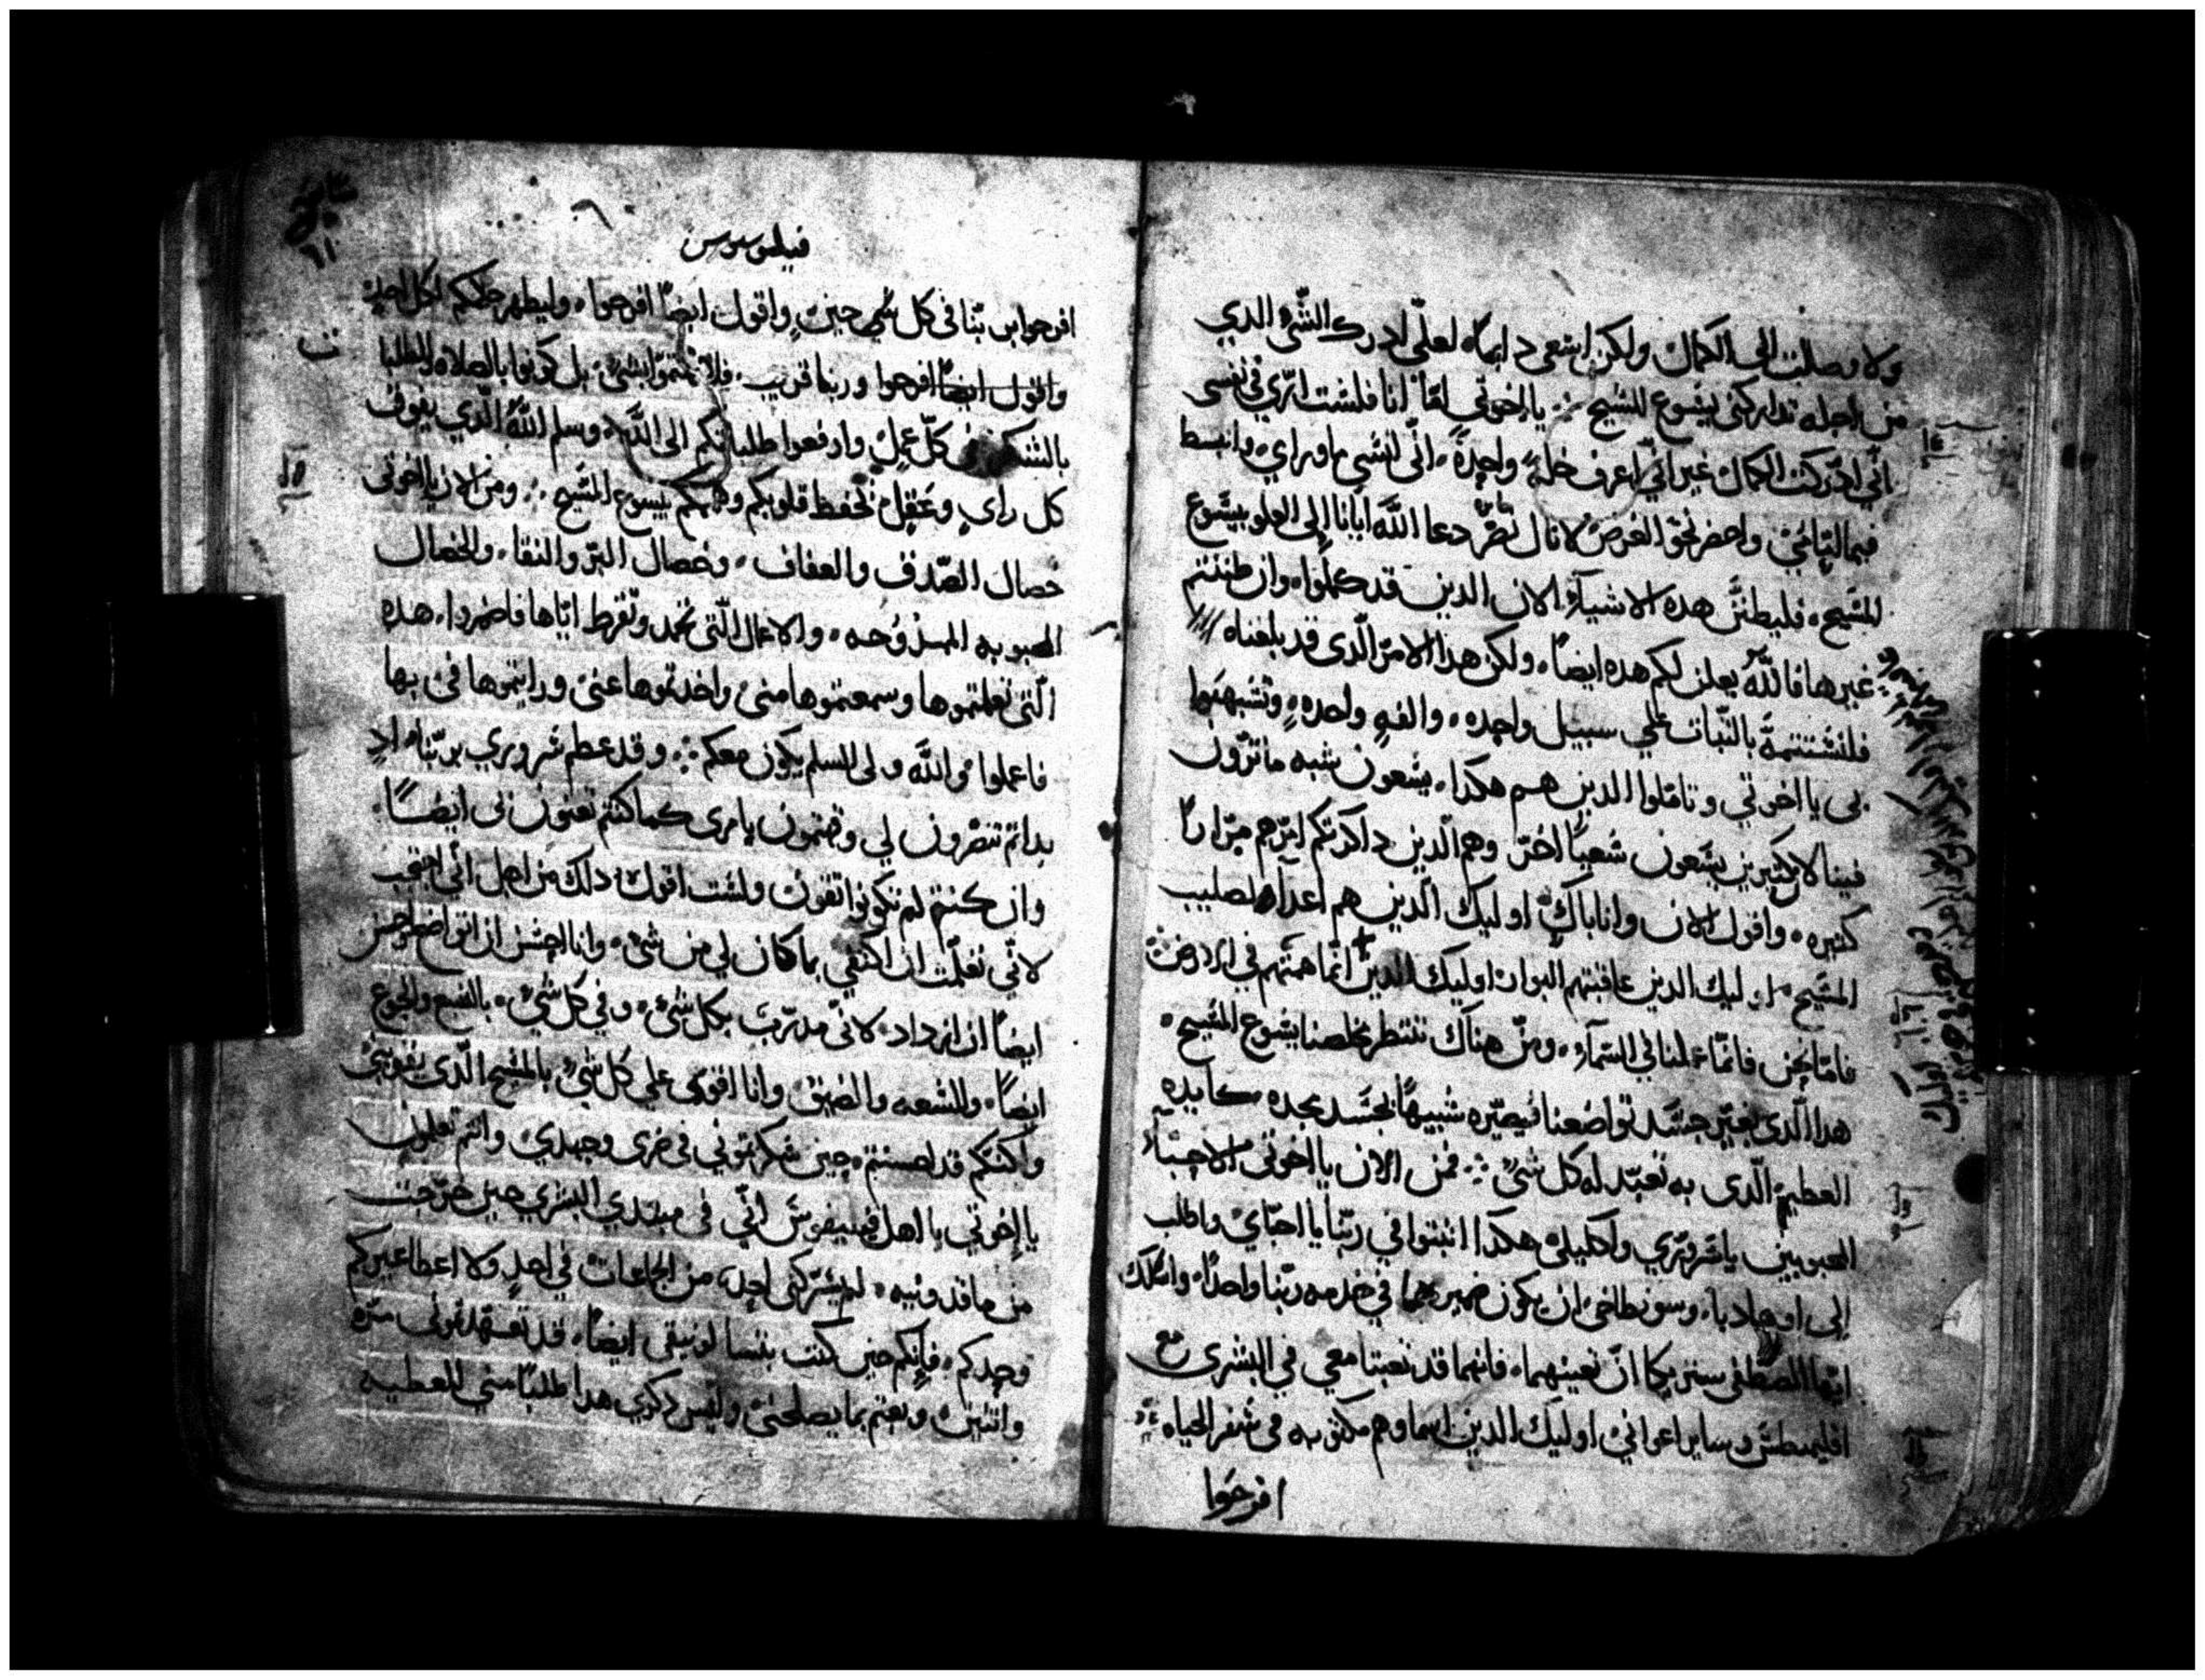 ولا وصلت الى الكمال ولكن اسعى دايماً لعلّي ادرك الشى الدي
من اجله تداركنى يسوع المسيح ۞ يا اخوتي امّا انا فلست ارى في نفسى
انّي ادركت الكمال غير انّي اعرف خلة واحدة انّى انسى ما وراي وانبسط
فيما امامي واحضر نحو الغرض لانال دعا الله ابانا إلى العلو بيسوع
المسيح فليظنّن هده الاشياء الان الدين قد كملوا وان ظننتم
غيرها فالله يعلن لكم هده ايضاً ولكن هدا الامر الّدى قد بلغناه
فلنستتمة بالثبات على سبيل واحده والفةٍ واحدهٍ وتشبهوا
بى يا اخوتي وتاملوا الدين هم هكدا يسعون شبه ما ترون
فينا لان كثيرين يسعون سعياً اخر وهم الّدين داكرتكم امرهم مراراً
كثيره واقول الان وانا باكٍ اوليك الّدين هم اعداء لصليب
المسيح اوليك الدين عاقبتهم البوار اوليك الدين انّما همتهم في الارض
فامّا نحن فانّما عملنا في السماء ومن هناك ننتظر مخلصنا يسوع المسيح
هدا الّدى يغيّر جسد تواضعنا فيصيّره شبيهاً بجسد مجده كايده
العظيم الّدى به تعبّد له كل شيّ ۞ فمن الان يا اخوتى الاحباء
المحبوبين يا سروري واكليلى هكدا اثبتوا في ربّنا يا احبّاي واطلب
إلى اوهاديا وسونطاخى ان يكون ضميرهما في خدمه ربّنا واحداً واسلك
ايّها المصطفى ان تعينهما فانهما قد تعبتا معي في البشرى مع
اقليمطس وساير اعواني اوليك الدين اسماوهم مكتوبه فى سفر الحياه
افرحوا
فيلبوسوس
٦١
افرحوا بربّنا في كل حين واقول ايضاً افرحوا وليظهر حلمكم لكل احدٍ
واقول ايضاً افرحوا وربنا قريب فلا تهتموا بشى بل كونوا بالصلاه والطلبا
بالشكر فى كلّ عملٍ وارفعوا طلباتكم الى الله وسلم الله الّدي يفوق
كل راي وعقل تحفظ قلوبكم وهممكم بيسوع المسيح ۞ ومن الان يا اخوتى
خصال الصّدق والعفاف وخصال البرّ والنقا والخصال
المحبوبه الممدوحه والاعمال الّتى تحمد وتقرظ ايّاها فاضمروا هده
الّتى تعلمتموها وسمعتموها منى واخدتموها عنى ورايتموها فى بها
فاعملوا والله ولى السلم يكون معكم ۞ وقد عظم سروري بربّنا اد
بداتم تنظرون لي وتهتمون بامرى كما كنتم تعنون بى ايضاً
وان كنتم لم تكونوا تقون ولست اقول دلك من اجل انّي احتجت
لانّي تعلّمت ان اكتفي بما كان لي من شى وانا احسن ان اتواضع واحسن
ايضاً ان ازداد لانّى مدرّب بكل شى وفي كل شي بالشبع والجوع
ايضاً والسعه والضيق وانا اقوى على كل شيّ بالمسيح الّدى يقوينى
ولكنّكم قد احسنتم حين شكرتموني فى ضرى وجهدي وانتم تعلمون
يا إخوتي يا اهل فيليفوس انّي فى مبتدي البشري حين خرجت
من ماقدونيه لم يشركنى احد من الجماعات في اخدٍ ولا اعطا غيركم
وحدكم فإنكم حين كنت بتسالونيقى ايضاً قد تعهدتمونى مرّه
واثنتين وبعتم بما يصلحنى وليس دكري هدا طلباً منى للعطيه